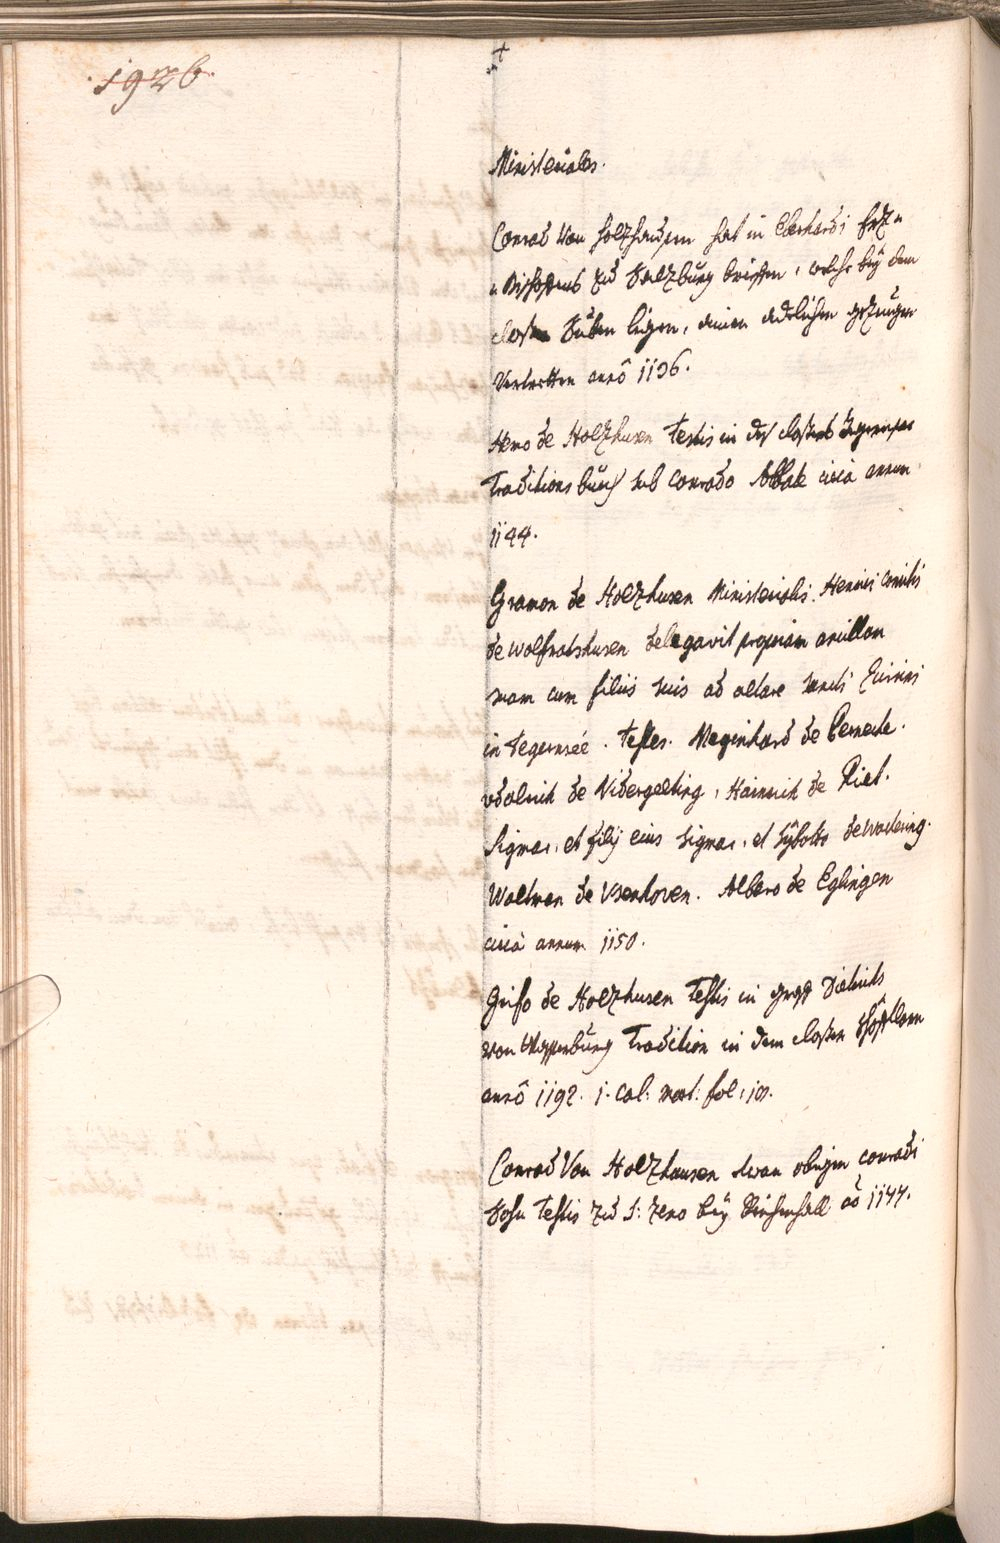 1926.
Ministeriales.
Conrad Von Holzhausen hat in Eberhardi Erz-
Bischofens zu Salzburg brieffen, welche bey dem
closter Süben ligen, einen adelichen gezeugen
Vertretten anno 1136.
Heno de Holzhusen testis in des closters Tegernsee
traditions buech sub Conrado Abbate circa annum
1144.
Gramon de Holzhusen Ministerialis Henrici comitis
de wolfratshusen delegavit propriam ancillam
suam cum filiis suis ad altare sancti Quirini
in Tegernsee. testes. Meginhard de
vdalrich de Nidergelting, Hainrich de Riet.
Sigmar, et filij eius Sigmar, et Sÿbotto de
Waltman de Vsenhoven. Albero de Eglingen
circa annum 1150.
Grifo de Holzhusen testis in Dietrichs
von Tradition in dem closter
anno 1192. fol:
Conrad Von Holzhausen obrigen conradi
Sohn testis zu S: Zeno bey Reichenhall aō 1177.